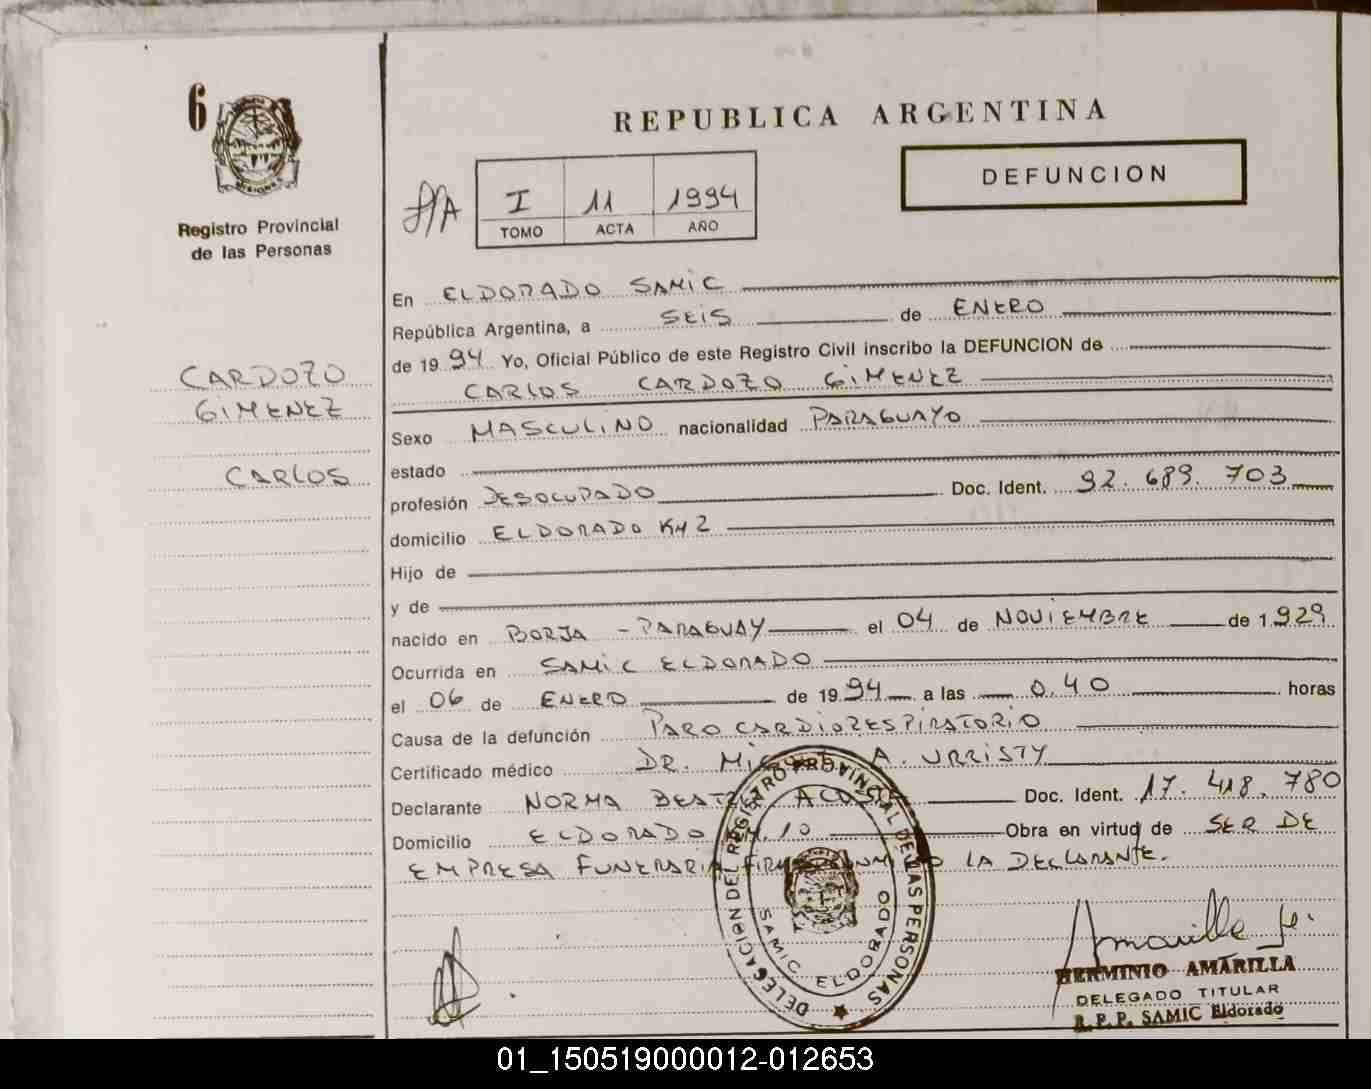 6
MISIONES
Registro Provincial
de las Personas
CARDOZO
GIMENEZ
CARLOS
REPUBLICA ARGENTINA
DEFUNCION
I 11 1994
TOMO ACTA AÑO
En ELDORADO SAMIC
República Argentina, a SEIS de ENERO
de 1994 Yo, Oficial Público de este Registro Civil inscribo la DEFUNCION de
CARLOS CARDOZO GIMENEZ
Sexo MASCULINO nacionalidad PARAGUAYO
estado
profesión DESOCUPADO Doc. Ident. 92.689.703
domicilio ELDORADO KM 2
Hijo de
y de
nacido en BORJA - PARAGUAY el 04 de NOVIEMBRE de 1.929
Ocurrida en SAMIC ELDORADO
el 06 de ENERO de 1994 a las 0,40 horas
Causa de la defunción PARO CARDIORESPIRATORIO
Certificado médico DR. MIGUEL A. URRISTY
Declarante NORMA BEATRIZ Doc. Ident. 17.418.780
Domicilio ELDORADO KM.10 Obra en virtud de SER DE
EMPRESA FUNERARIA LA DECLARANTE.
DELEGACION DEL REGISTRO PROVINCIAL DE LAS PERSONAS
SAMIC ELDORADO
Amarilla
HERMINIO AMARILLA
DELEGADO TITULAR
R.P.P. SAMIC Eldorado
01_150519000012-012653